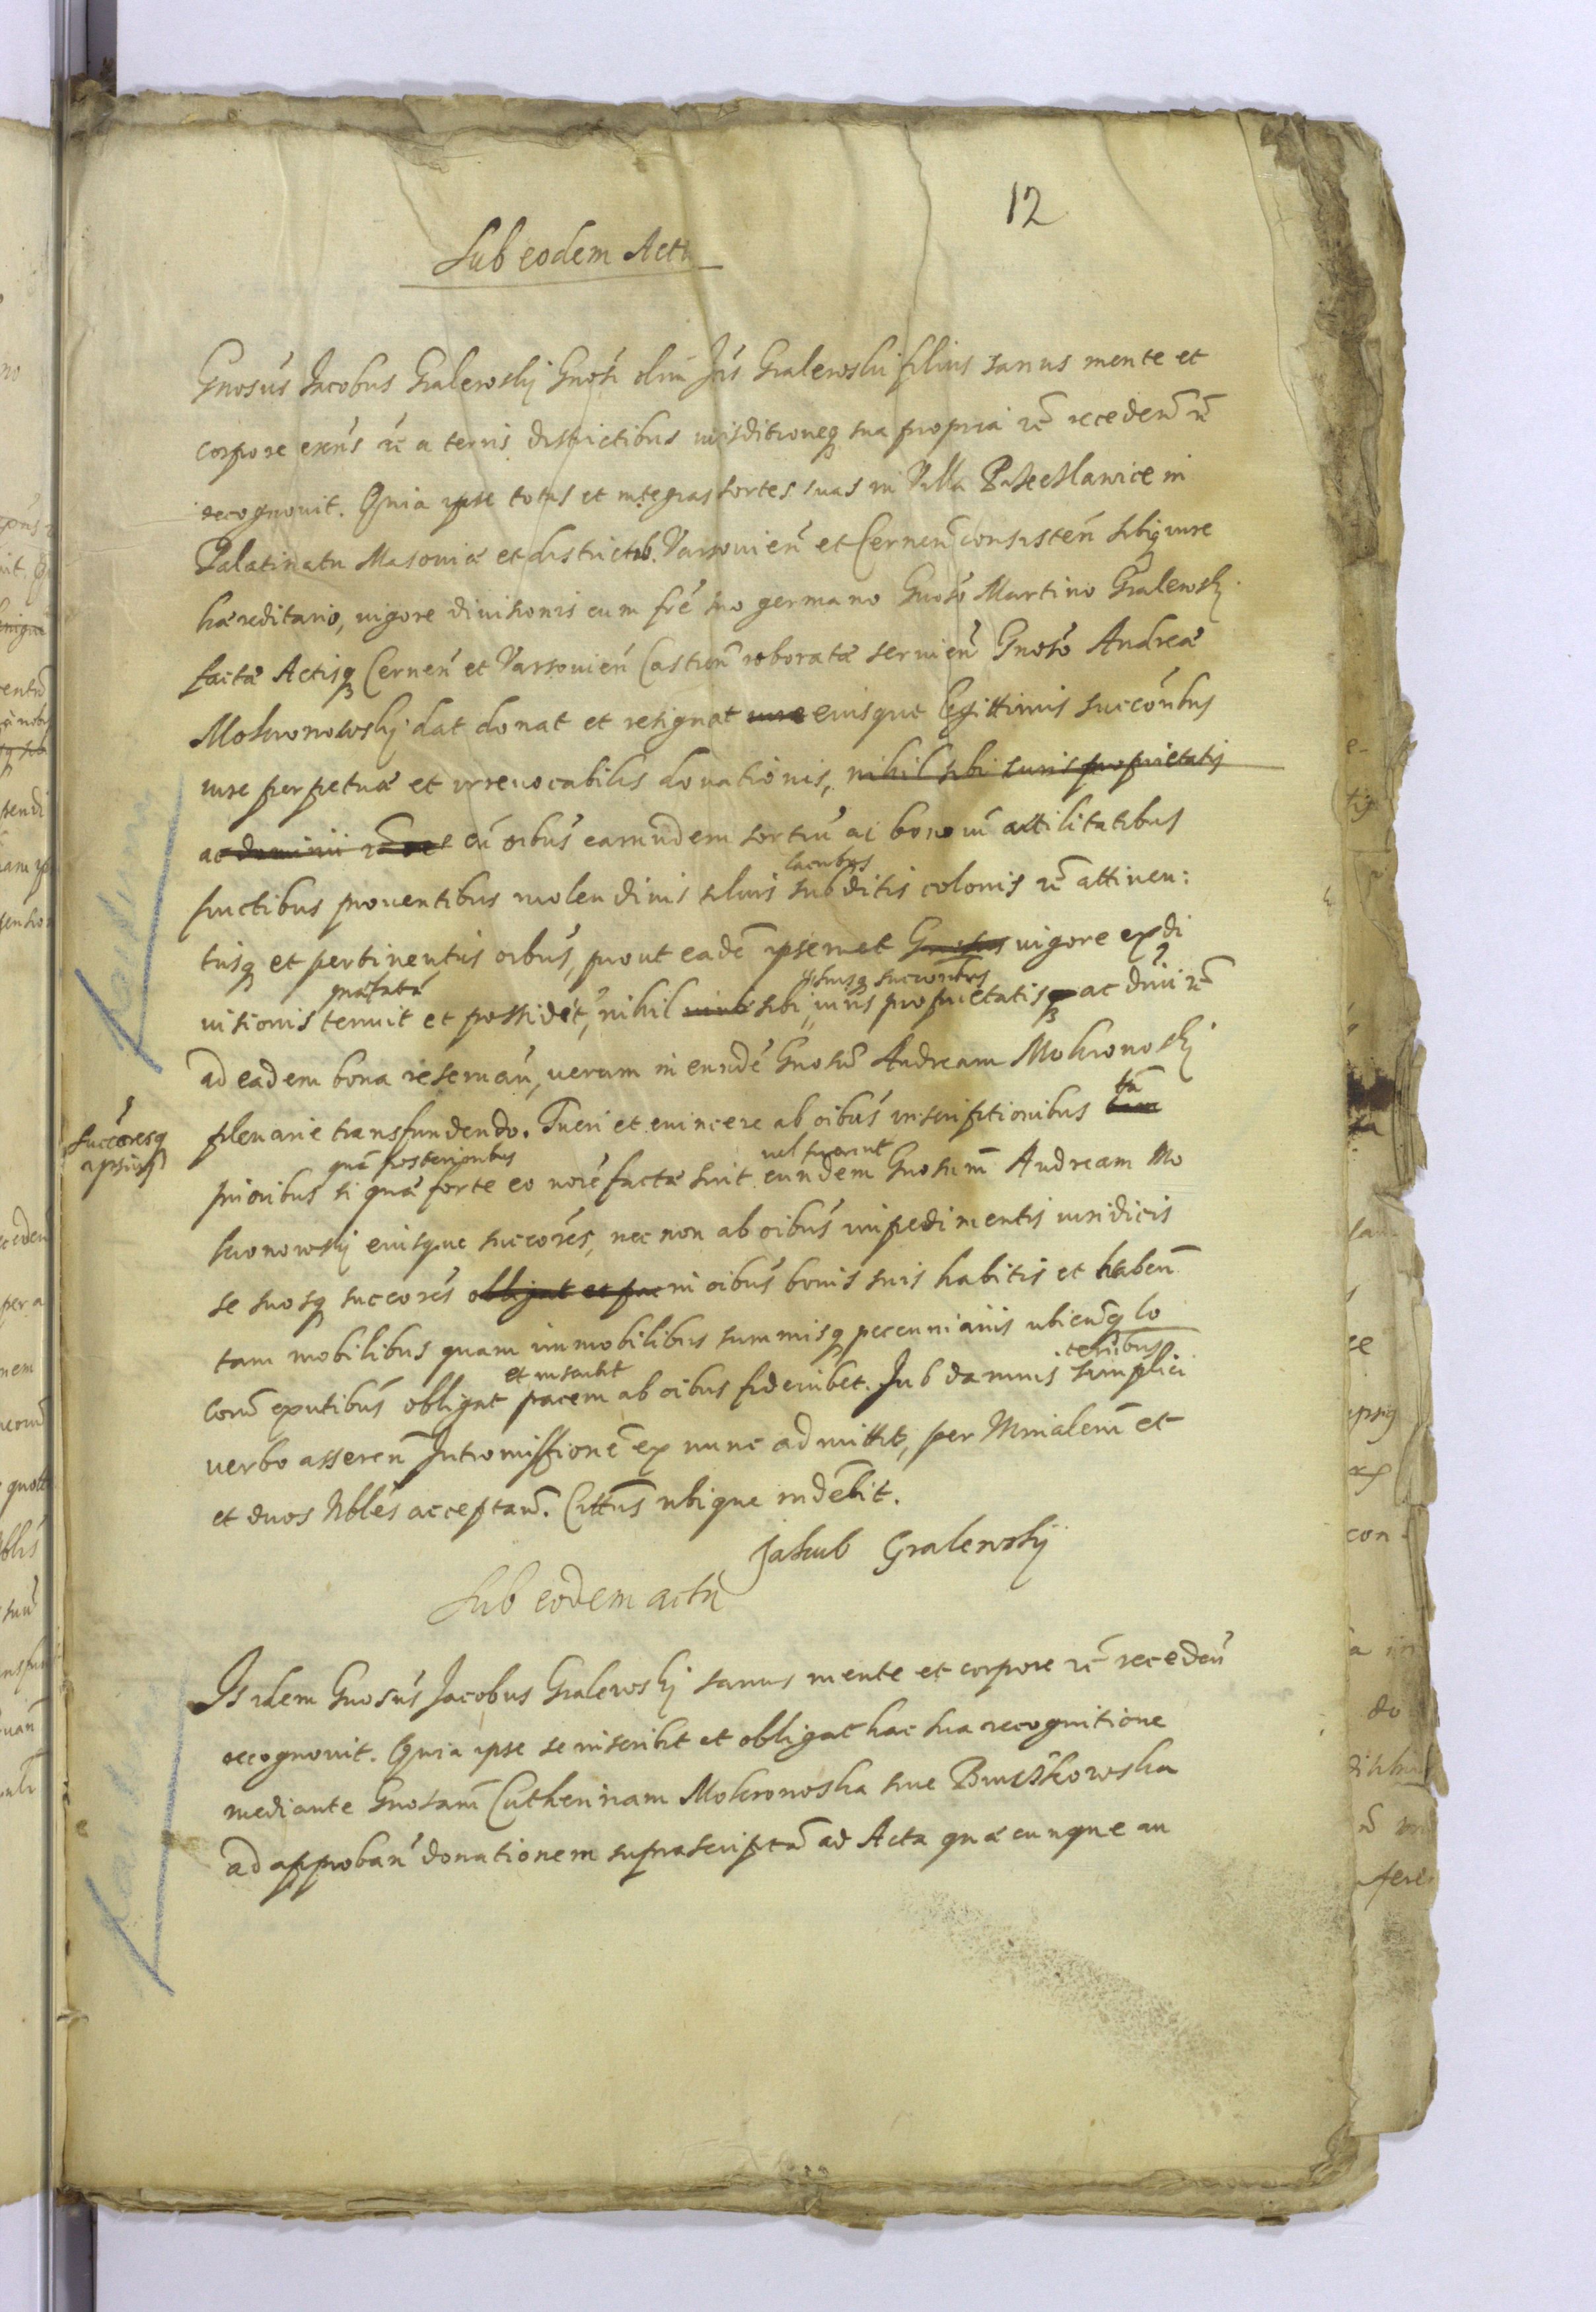 12
Sub eodem Actu
Gnosus Jacobus Gralewskj Gnosi olim Jis Gralewskii filius sanus mente et
corpore exiens rc a terris districtibus iurisditioneq sua propria rc receden rc
recognouit. Quia ipse totas et integras sortes suas in Villa in
Palatinatu Masouiæ et districtib. Varsouien et Cernen consisten sibiq iure
hæreditario, uigore diuisionis cum fre suo germano Gnoso Martino Gralewskj
factæ Actisq Cernen et Varsouien Castren roboratæ seruien Gnoso Andreæ
Mokronowskj dat donat et resignat iure eiusque legittimis succoribus
iure perpetuæ et irreuocabilis donationis, nihil sibi iuris proprietatis
ac dominii cu oibus earundem sortiu ac bonoru uttilitatibus
lacubus
fructibus prouentibus molendinis siluis subditis colonis rc attinen:
tiisq et pertinentiis oibus, prout eade ipsemet uigore ex di
præfatæ ipsiusq succoribus
uisionis tenuit et possidet, nihil sibi iuris proprietatisq ac dnii rc
ad eadem bona reseruan, uerum in eunde Gnosu Andream Mokronoskj
plenarie transfundendo. Tueri et euincere ab oibus inscriptionibus tam ta
succoresq
ipsius
qua posterioribus uel fuerint
prioribus si quæ forte eo noie factæ sint eundem Gnosum Andream Mo
kronowskj eiusque succores, nec non ab oibus impedimentis iuridicis
se suosq succores obligat et in oibus bonis suis habitis et haben
tam mobilibus quam immobilibus summisq pecuniariis ubicunq lo
et inscribit terribus
coru exntibus obligat pacem ab oibus fideiubet. Sub damnis simplici
uerbo asseren Intromissione ex nunc admittit, per Mnialem et
et duos Nbles acceptan. Cittus ubique indebit.
Jakub Gralewskij
Sub eodem actu
Isdem Gnosus Jacobus Gralewskj sanus mente et corpore rc receden
recognouit. Quia ipse se inscribit et obligat hac sua recognitione
mediante Gnosam Catherinam Mokronoska siue
ad approban donationem suprascripta ad Acta quæcunque au